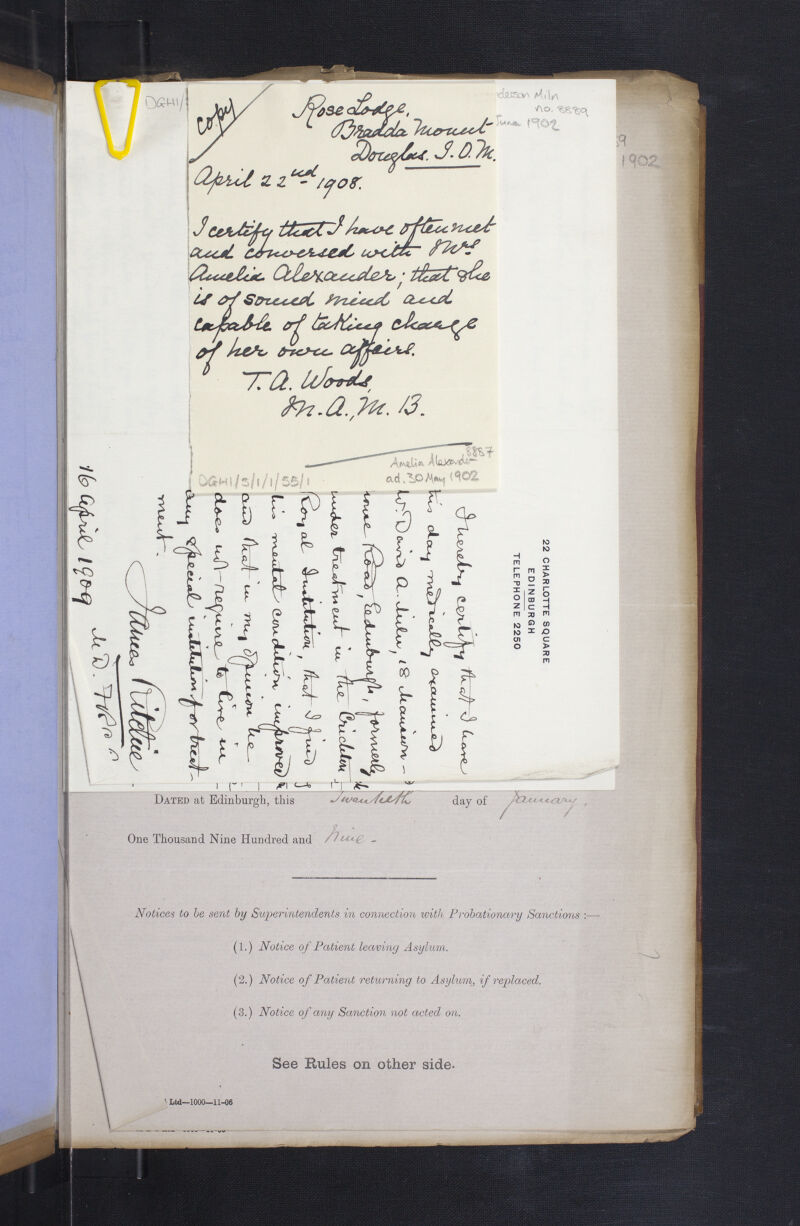 copy
Rose Lodge,
Bradda Mount
Douglas. I.O.M.
April 22nd 1908.
I certify that I have often met
and conversed with Mrs
Amelia Alexander; that she
is of sound mind and
capable of taking charge
of her own affairs.
T. A. Woods,
M.A., M.B.
8887
Amelia Alexander
ad. 30 May 1902
DGH1/5/1/1/55/1
DGH1/
derson Miln
no. 8889
June 1902
1902
22 CHARLOTTE SQUARE
EDINBURGH
TELEPHONE 2250
I hereby certify that I have
this day medically examined
Mr. David A. Miln, 18 Mansion-
house Road, Edinburgh, formerly
under treatment in the Crichton
Royal Institution, that I find
his mental condition improved
and that in my opinion he
does not require to live in
any special institution for treat-
ment.
James Ritchie.
M.D.
16 April 1909
DATED at Edinburgh, this Twentieth day of January.
One Thousand Nine Hundred and Nine-
Notices to be sent by Superintendents in connection with Probationary Sanctions :—
(1.) Notice of Patient leaving Asylum.
(2.) Notice of Patient returning to Asylum, if replaced.
(3.) Notice of any Sanction not acted on.
See Rules on other side.
Ltd—1000—11-06